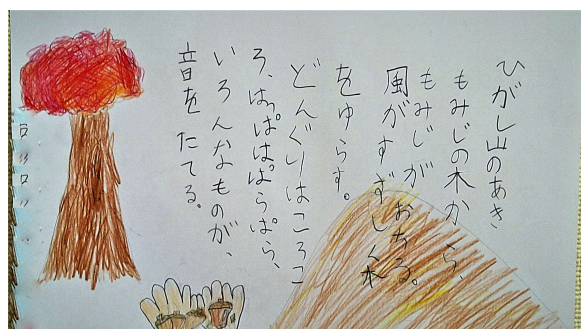 ひがし山のあき
もみじの木から、
もみじがおちる。
風がすずしく木
をゆらす。
どんぐりはころこ
ろ、はっぱはぱらぱら、
いろんなものが、
音をたてる。